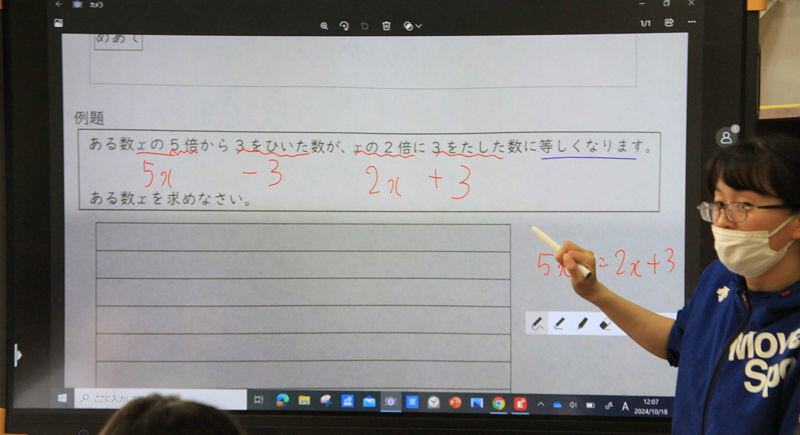 カメラ
1/1
めあて
例題
ある数xの5倍から3をひいた数が、xの2倍に3をたした数に等しくなります。
5x -3 2x +3
ある数xを求めなさい。
5x = 2x+3
ここに入力して
A
12:07
2024/10/18
Move
Spo